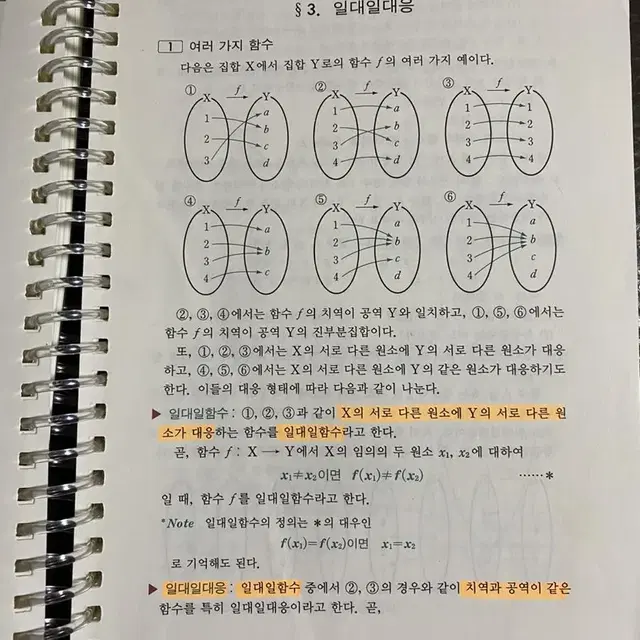 § 3. 일대일대응
1 여러 가지 함수
다음은 집합 X에서 집합 Y로의 함수 f의 여러 가지 예이다.
① X f Y 1 2 3 a b c d
② X f Y 1 2 3 4 a b c d
③ X f Y 1 2 3 4 1 2 3 4
④ X f Y 1 2 3 4 a b c
⑤ X f Y 1 2 3 4 a b c d
⑥ X f Y 1 2 3 4 a b c d
②, ③, ④에서는 함수 f의 치역이 공역 Y와 일치하고, ①, ⑤, ⑥에서는
함수 f의 치역이 공역 Y의 진부분집합이다.
또, ①, ②, ③에서는 X의 서로 다른 원소에 Y의 서로 다른 원소가 대응
하고, ④, ⑤, ⑥에서는 X의 서로 다른 원소에 Y의 같은 원소가 대응하기도
한다. 이들의 대응 형태에 따라 다음과 같이 나눈다.
▶ 일대일함수 : ①, ②, ③과 같이 X의 서로 다른 원소에 Y의 서로 다른 원
소가 대응하는 함수를 일대일함수라고 한다.
곧, 함수 f : X ⟶ Y에서 X의 임의의 두 원소 x₁, x₂에 대하여
x₁≠x₂이면 f(x₁)≠f(x₂) ……*
일 때, 함수 f를 일대일함수라고 한다.
*Note 일대일함수의 정의는 *의 대우인
f(x₁)=f(x₂)이면 x₁=x₂
로 기억해도 된다.
▶ 일대일대응 : 일대일함수 중에서 ②, ③의 경우와 같이 치역과 공역이 같은
함수를 특히 일대일대응이라고 한다. 곧,